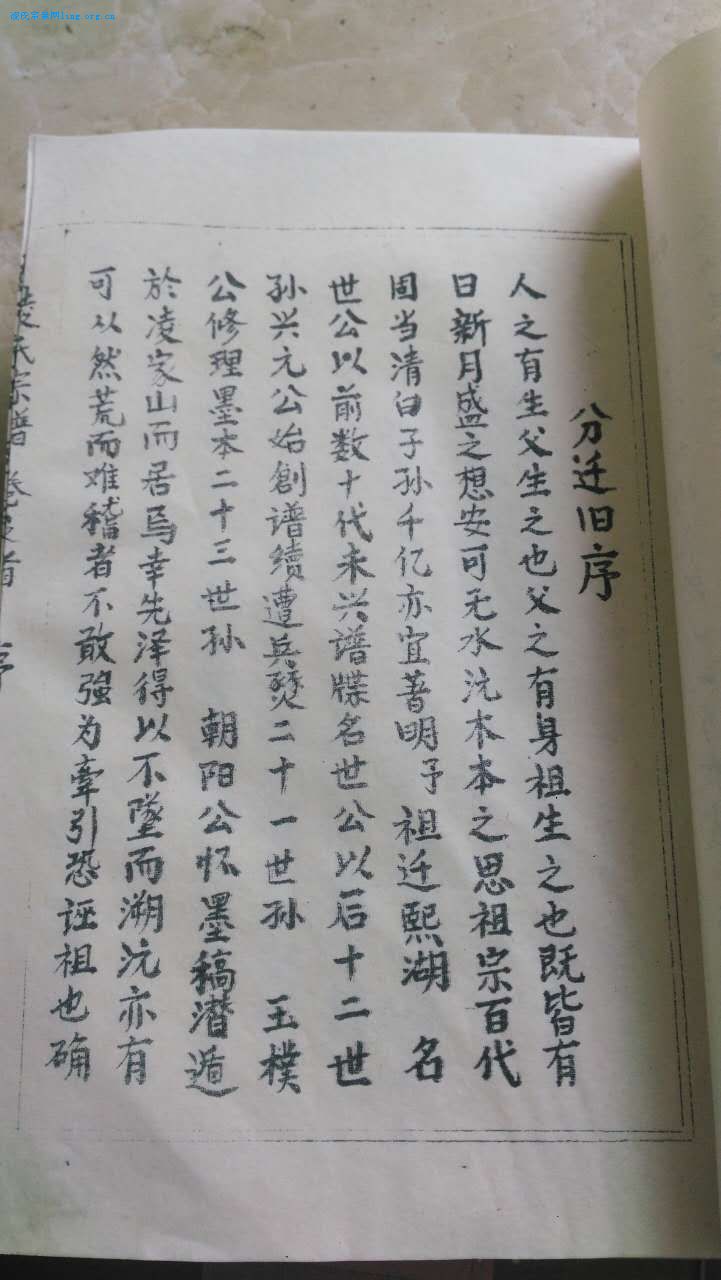 凌氏宗亲网ling.org.cn
分迁旧序
人之有生父生之也父之有身祖生之也既皆有
日新月盛之想安可无水沅木本之思祖宗百代
固当清白子孙千亿亦宜著明予 祖迁熙湖 名
世公以前数十代未兴谱牒名世公以后十二世
孙兴元公始創谱续遭兵燹二十一世孙 玉樸
公修理墨本二十三世孙 朝阳公怀墨稿潜遁
於凌家山而居焉幸先泽得以不墜而溯沅亦有
可以然荒而难稽者不敢强为牽引恐诬祖也确
氏宗谱 卷 首 序